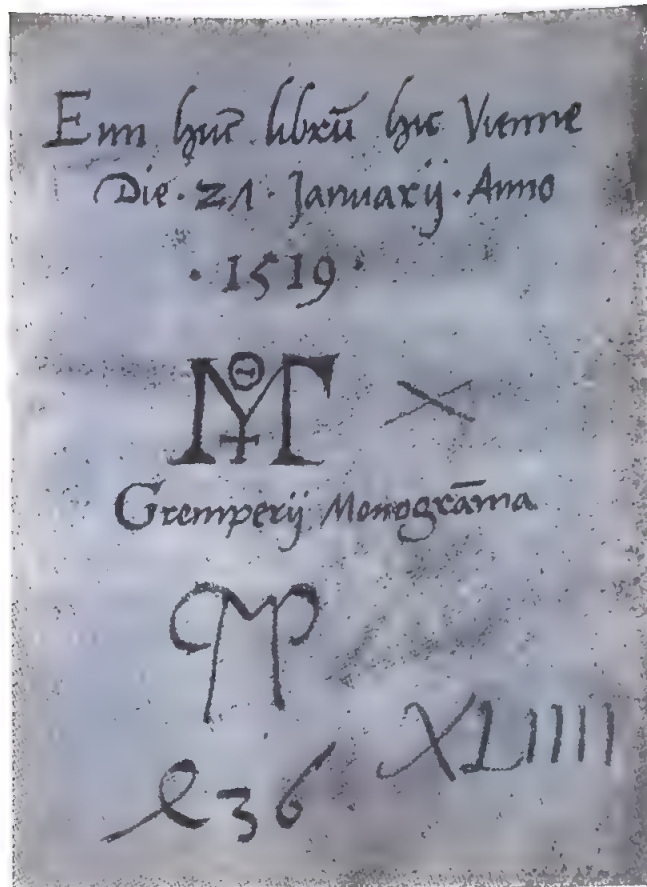 Emi hūc librū hic Vienne
Die · 21 · Januarij · Anno
· 1519 ·
Gremperij Monogrāma
XLIIII
l36